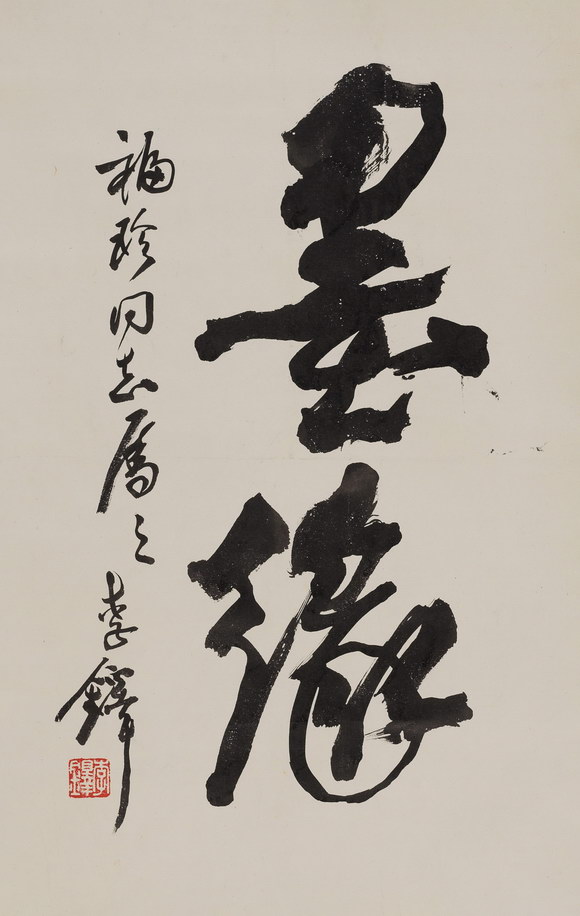 墨缘
福珍同志属之
李铎
李铎